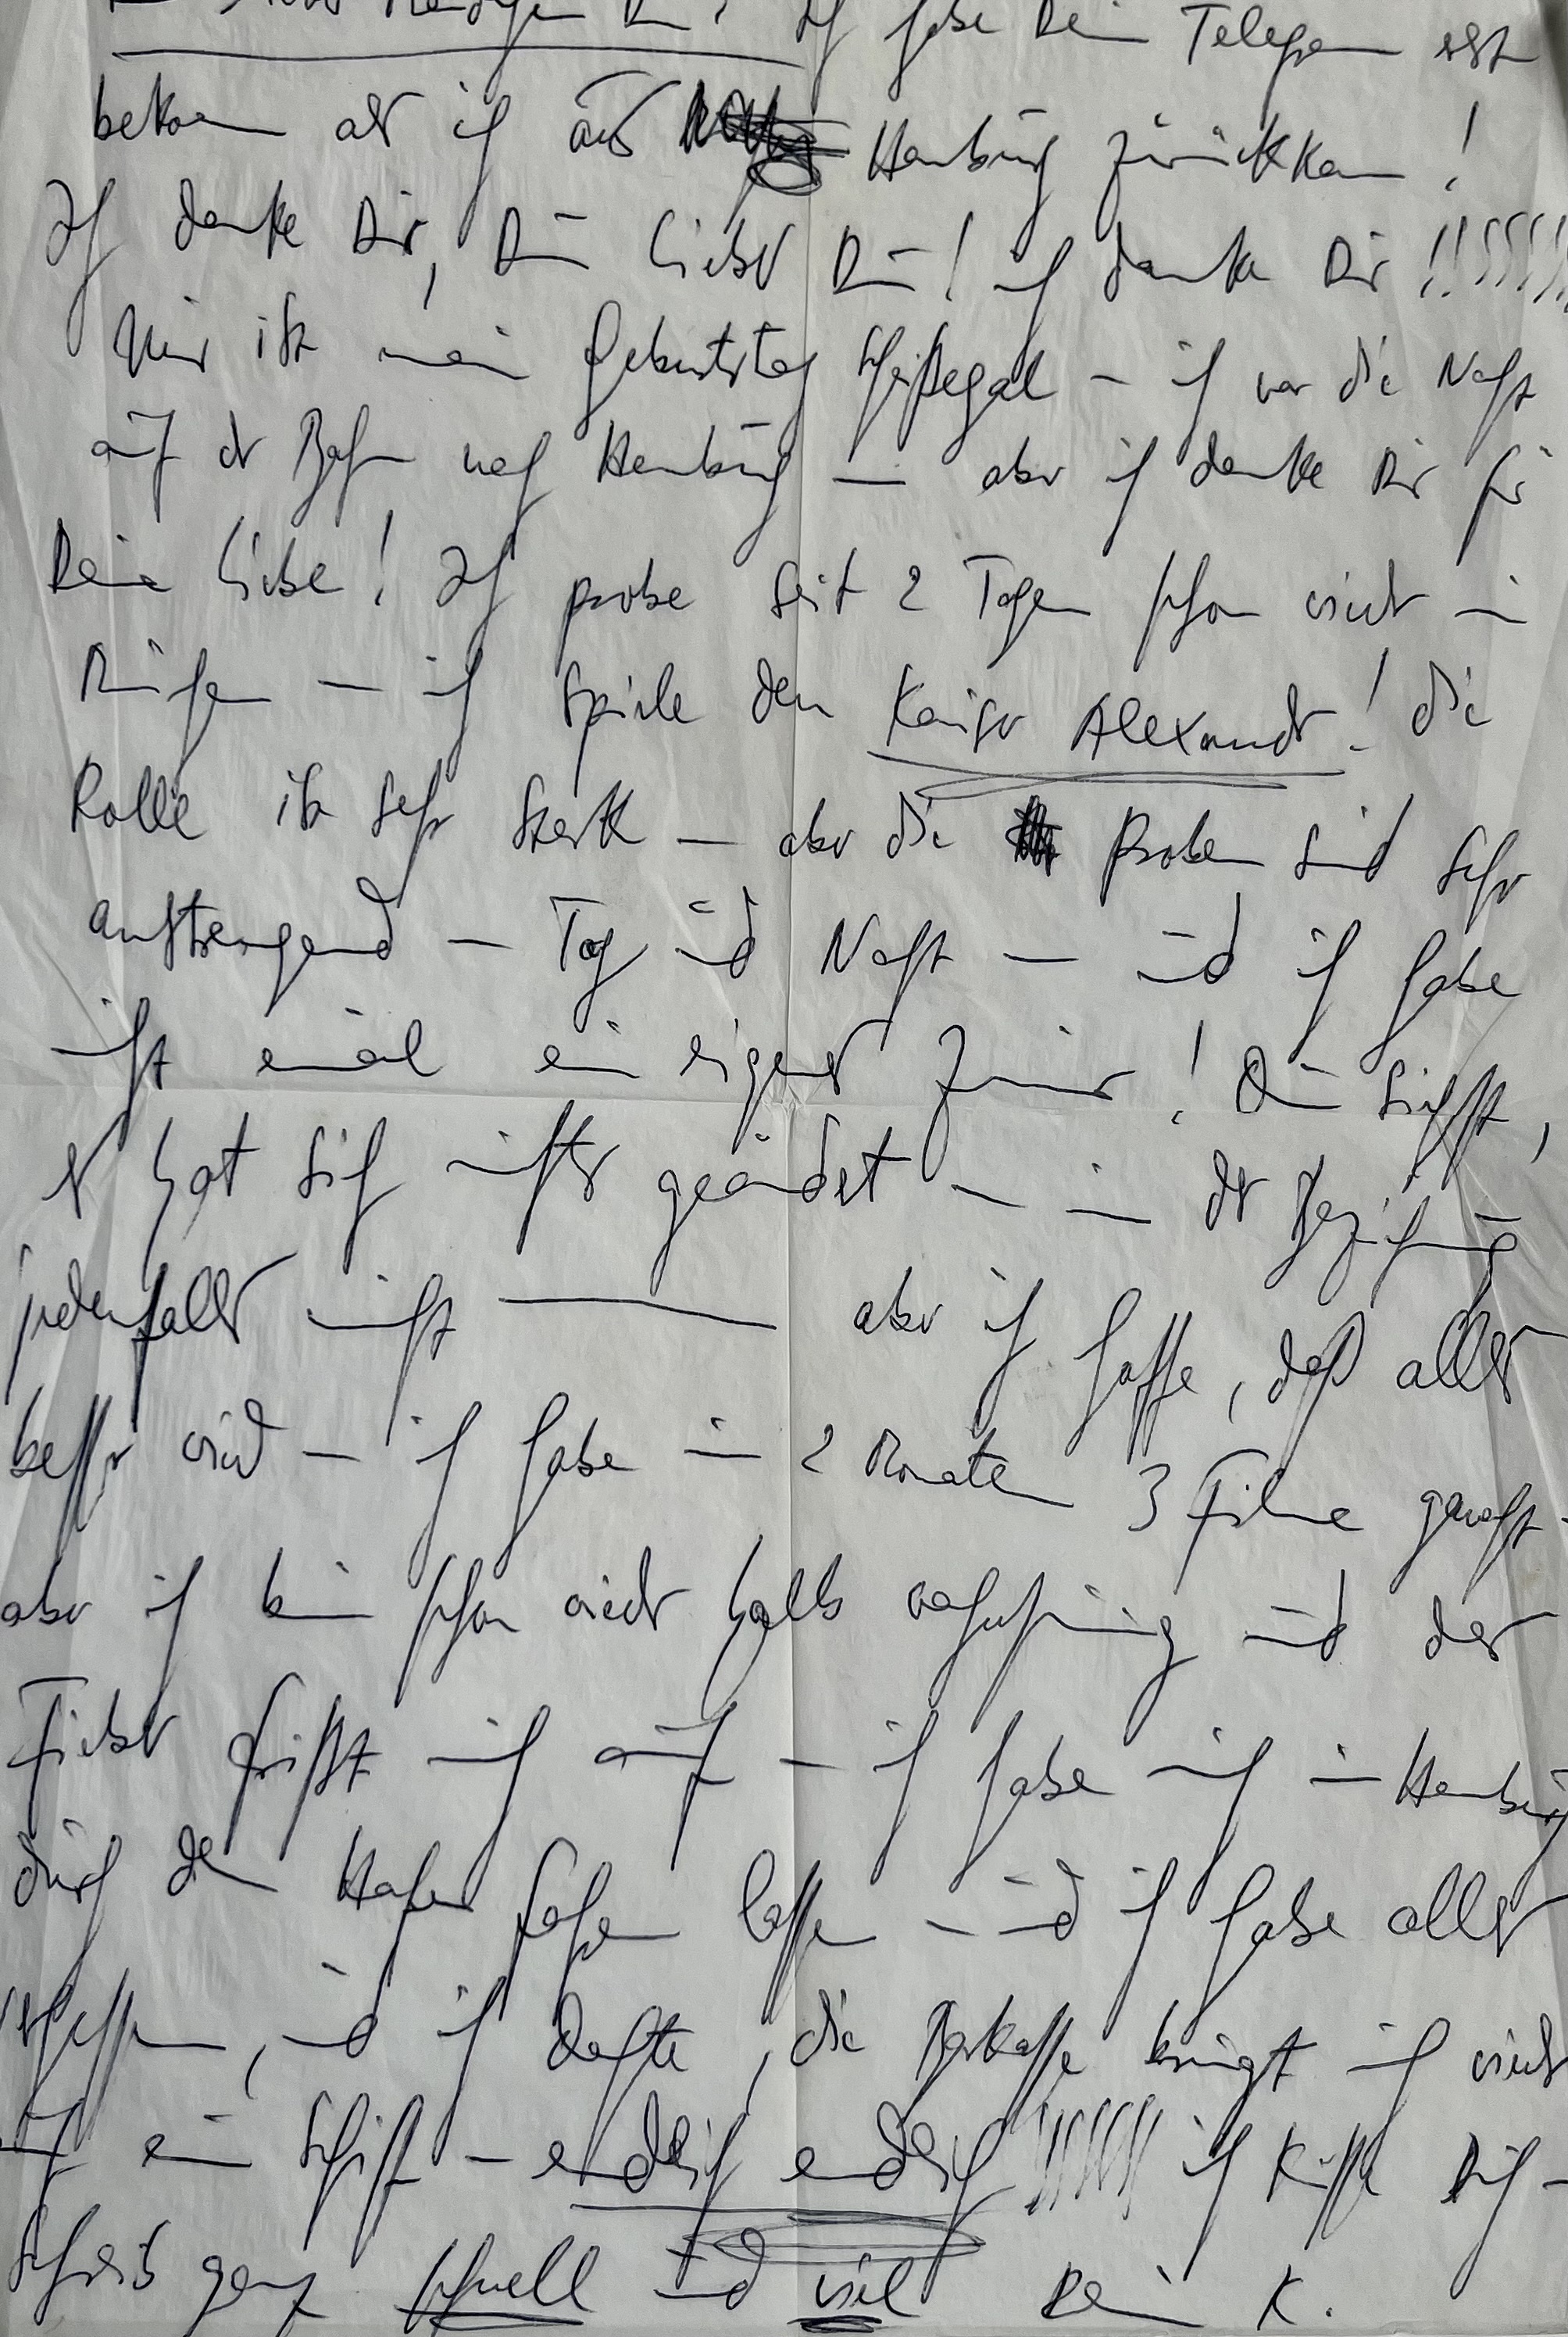 Du! Ich habe Dein Telegram erst
bekomen als ich aus Hamburg zurückkam!
Ich danke Dir, Du liebes Du! ich danke Dir!!!!!!!
Mir ist mein Geburtstag scheißegal – ich war die Nacht
auf der Bahn nach Hamburg — aber ich danke Dir für
Deine Liebe! Ich probe seit 2 Tagen schon wieder in
München — ich spiele den Kaiser Alexander! die
Rolle ist sehr stark — aber die Proben sind sehr
anstrengend — Tag und Nacht — und ich habe
nicht einmal ein eigenes Zimmer! Du siehst,
es hat sich nichts geändert — in der Beziehung
jedenfalls nicht ——— aber ich hoffe, daß alles
besser wird — ich habe in 2 Monaten 3 Filme gemacht -
aber ich bin schon wieder halb wahnsinnig und das
Fieber frißt mich auf — ich habe mich in Hamburg
durch den Hafen fahren lassen — und ich habe alles
vergessen, und ich dachte, die Barkasse bringt mich wieder
auf ein Schiff — endlich endlich !!!!!!! ich küsse Dich –
Schreib ganz schnell und viel Dein K.